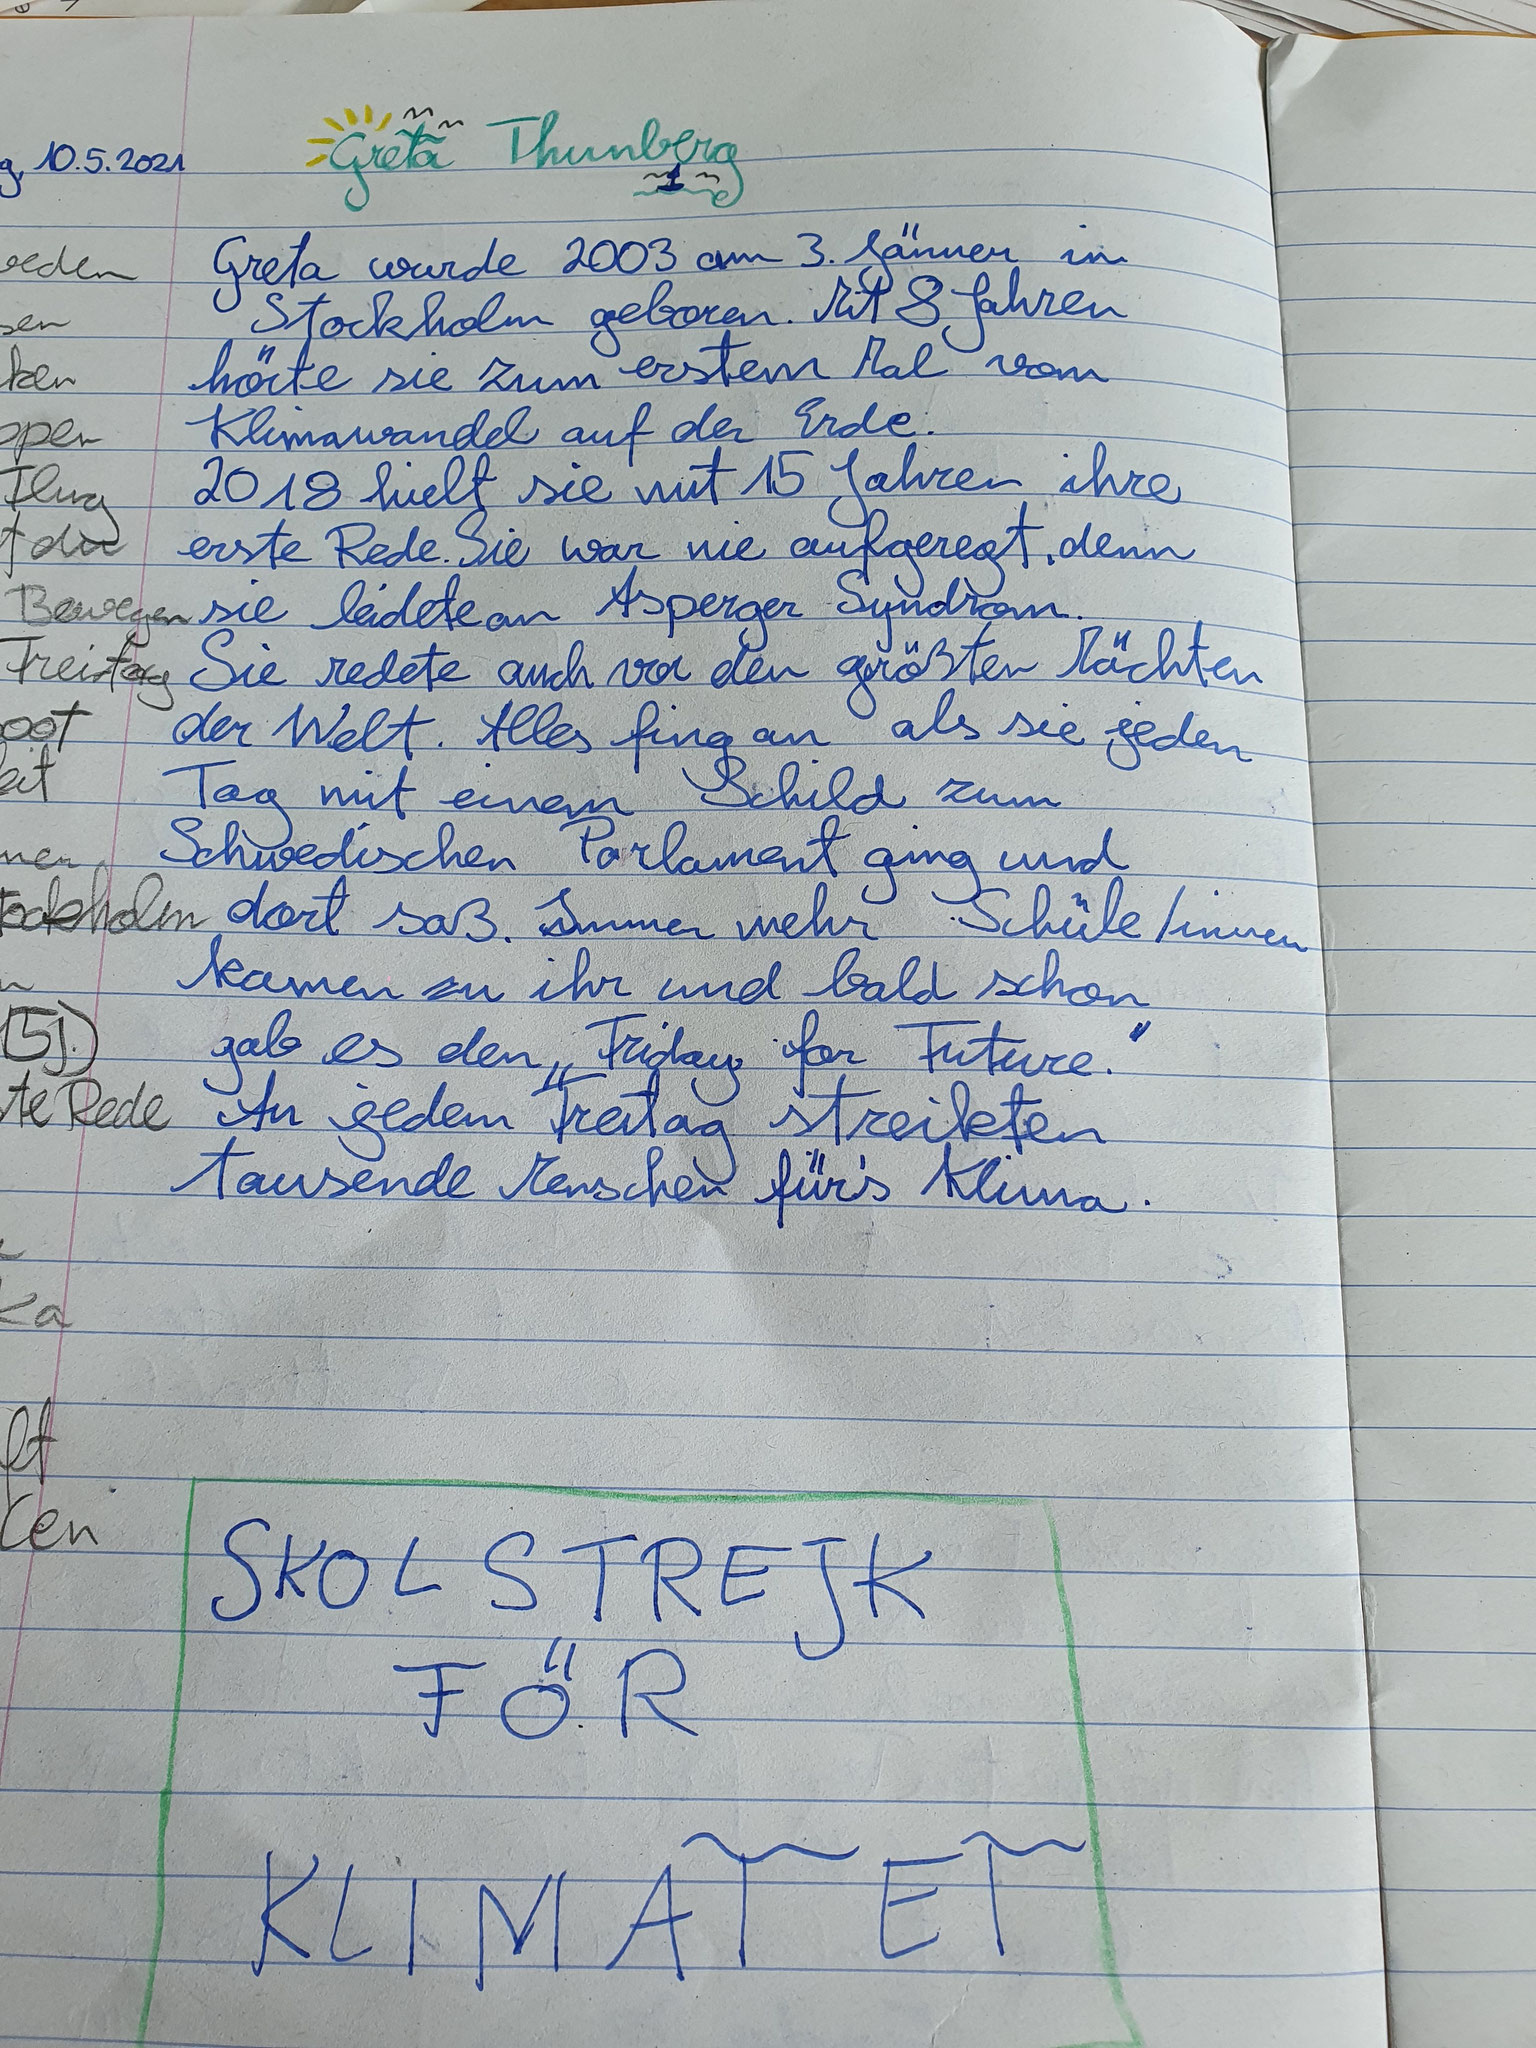 10.5.2021 Greta Thunberg
Greta wurde 2003 am 3. Jänner in
Stockholm geboren. Mit 8 Jahren
hörte sie zum erstem Mal vom
Klimawandel auf der Erde.
2018 hielt sie mit 15 Jahren ihre
erste Rede. Sie war nie aufgeregt, denn
Bewegen sie leidete an Asperger Syndrom.
Freitag Sie redete auch vor den größten Mächten
der Welt. Alles fing an als sie jeden
Tag mit einem Schild zum
Schwedischen Parlament ging und
dort saß. Immer mehr Schüle/innen
kamen zu ihr und bald schon
gab es den „Friday for Future."
Rede An jedem Freitag streikten
tausende Menschen für's Klima.
SKOLSTREJK
FÖR
KLIMATET